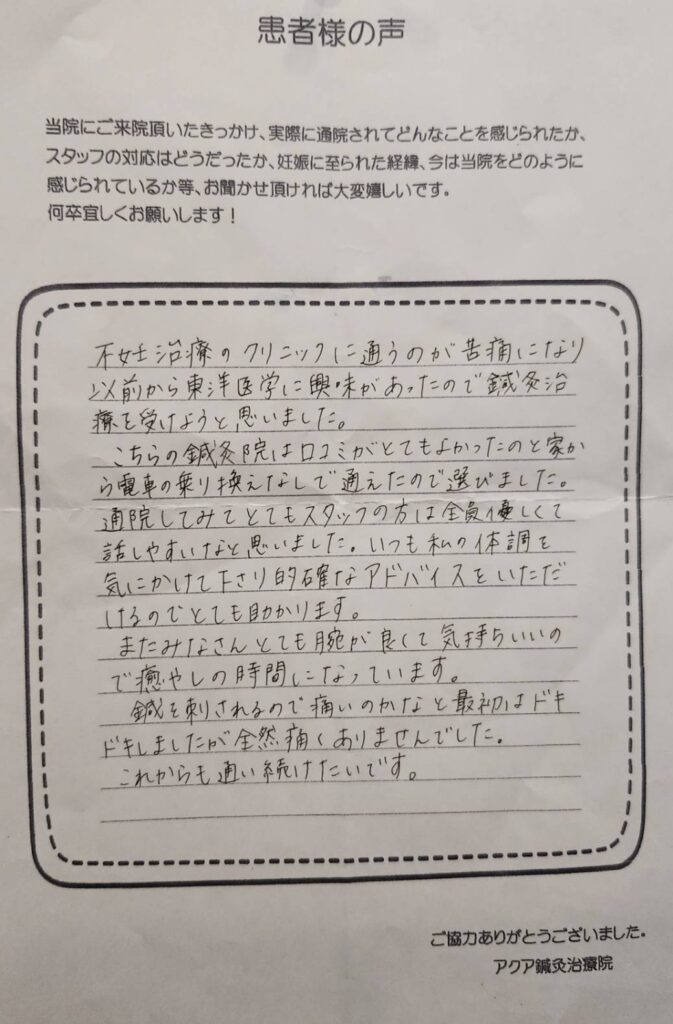 患者様の声
当院にご来院頂いたきっかけ、実際に通院されてどんなことを感じられたか、
スタッフの対応はどうだったか、妊娠に至られた経緯、今は当院をどのように
感じられているか等、お聞かせ頂ければ大変嬉しいです。
何卒宜しくお願いします！
不妊治療のクリニックに通うのが苦痛になり
以前から東洋医学に興味があったので鍼灸治
療を受けようと思いました。
こちらの鍼灸院は口コミがとてもよかったのと家か
ら電車の乗り換えなしで通えたので選びました。
通院してみてとてもスタッフの方は全員優しくて
話しやすいなと思いました。いつも私の体調を
気にかけて下さり的確なアドバイスをいただ
けるのでとても助かります。
またみなさんとても腕が良くて気持ちいいの
で癒やしの時間になっています。
鍼を刺されるので痛いのかなと最初はドキ
ドキしましたが全然痛くありませんでした。
これからも通い続けたいです。
ご協力ありがとうございました。
アクア鍼灸治療院